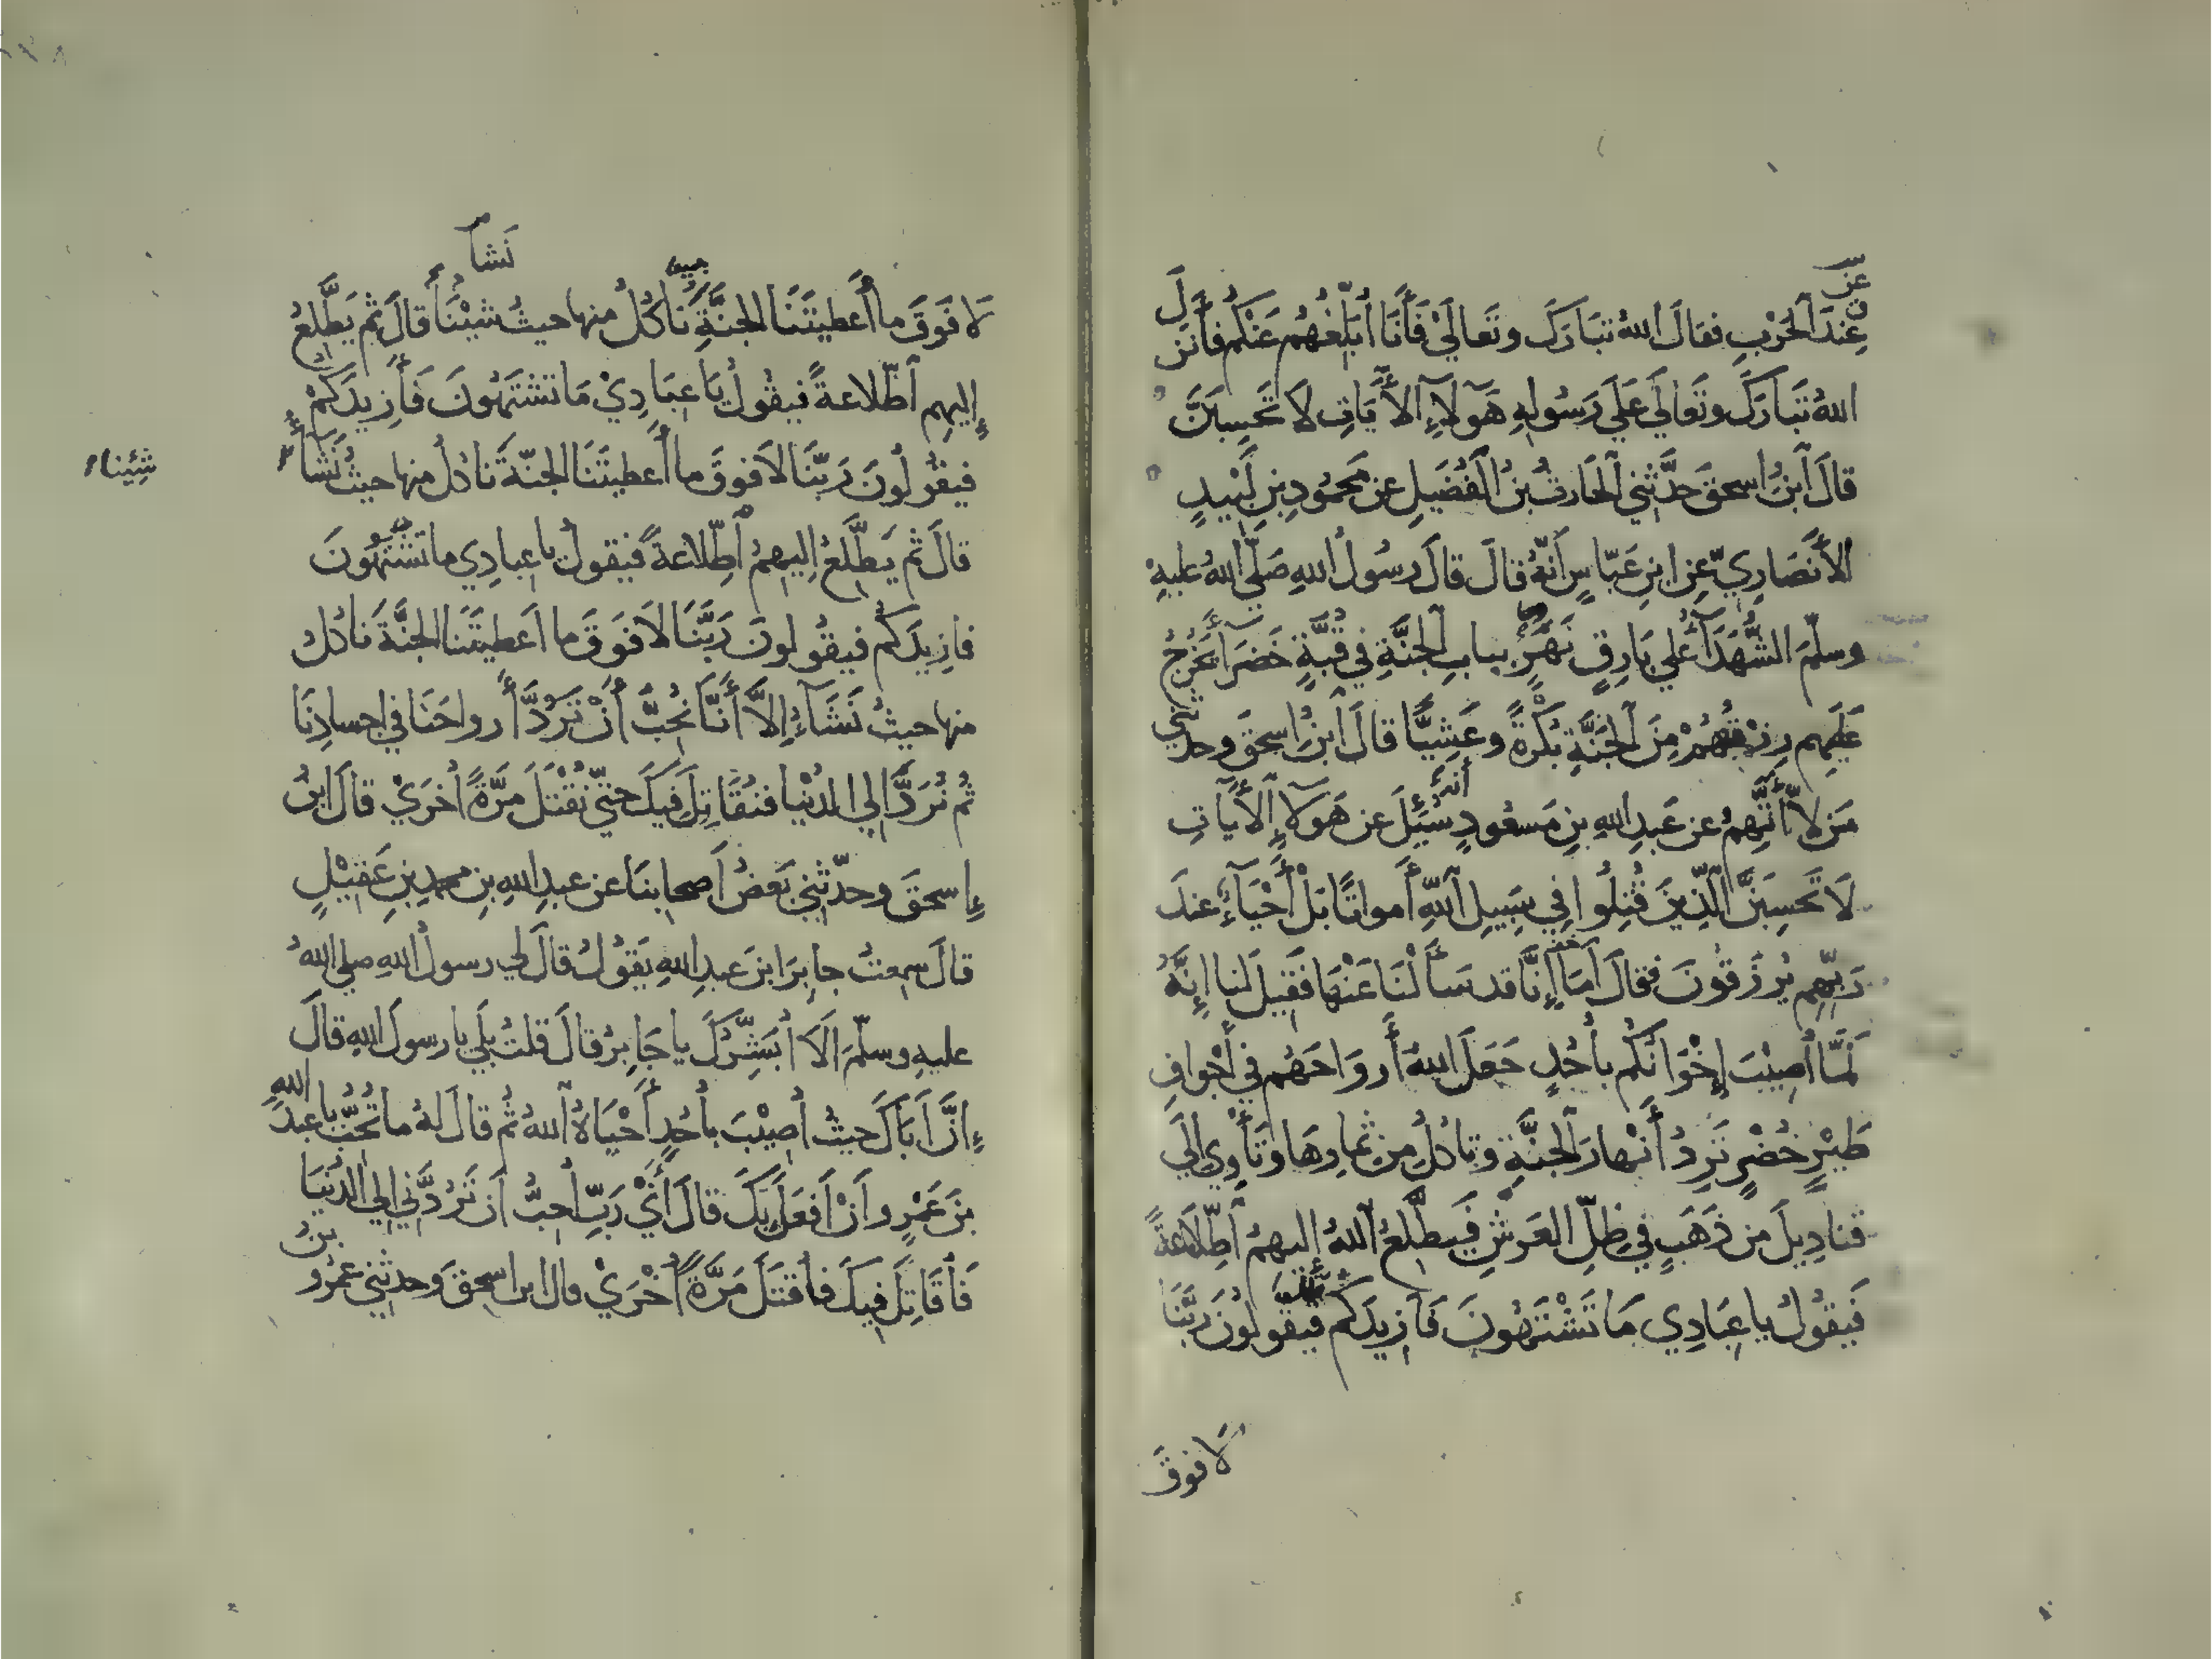 عن
عِندَ الْحَرْبِ فقالَ اللهُ تبَارَكَ وتَعالَيْ فَأَنَا أُبَلِّغُهُم عَنْكُم فأَنزَلَ
اللهُ تَبَارَكَ وتَعالَي عَلَي رَسُولِهِ هَوٓلاءِ الآيَاتِ لَا تَحْسِبَنَّ
قالَ ابنُ اسحقَ حدَّثني الحَارثُ بنُ الفُضَيلِ عن مَحمُودِ بنِ لَبِيدٍ
الأَنصَارِيِّ عنِ ابنِ عَبّاسٍ أنّهُ قالَ قالَ رسُولُ اللهِ صَلّي اللهُ عليهِ
وسلّمَ الشُّهَدَآءُ علي بَارِقٍ نَهَرٍ ببابِ الجنَّةِ في قُبَّةٍ خَضرَآءَ يَخْرُجُ
عَلَيهِم رِزْقُهُمْ مِنَ الجَنَّةِ بُكْرَةً وعَشِيًّا قالَ ابنُ اسحقَ وحدثني
مَن لا أَتَّهِمُ عن عَبدِ اللهِ بنِ مَسعُودٍ أنه سُئِلَ عن هَوٓلاءِ الآيَاتِ
لَا تَحْسِبَنَّ الَّذِينَ قُتِلُوا فِي سَبِيلِ اللّهِ أَمواتًا بَلْ أَحْيَآءٌ عندَ
رَبِّهِم يُرْزَقُونَ فقالَ أمَا إِنَّا قد سَأَلْنَا عَنْهَا فَقِيلَ لنا إِنَّهُ
لَمَّا أُصِيْبَ إِخْوَانُكُم بأُحُدٍ جَعَلَ اللهُ أَروَاحَهُم في أَجْوافِ
طَيْرٍ خُضْرٍ تَرِدُ أَنْهارَ الجَنَّةِ وتاكلُ مِن ثمارِهَا وتَأْوِي الَي
قنادِيلَ مِن ذَهَبٍ في ظِلِّ العَرشِ فَيطَّلِعُ اللهُ إِليهِمُ اطِّلَاعَةً
فَيقُولُ يا عِبَادِي مَا تَشْتَهُونَ فَأَزِيدَكُم فيقُولُونَ رَبَّنَا
لَا فوقَ
نَشآء
لَا فَوقَ ما أَعطيتَنَا الجنَّةِ نَاكُلُ منها حيثُ شِيْنَا قالَ ثم يَطَّلِعُ
إِليهِم اطّلاعةً فيقُولُ يَا عِبَادِيْ مَا تشتَهُونَ فَأَزِيدَكُمْ
فيقُولُونَ رَبَّنَا لاَ فوقَ ما أَعطيتَنَا الجنّةَ نَاكلُ منها حيثُ نَشَآءُ
شِئِنا
قالَ ثم يَطَّلعُ اليهِمُ اطِّلاعةً فيقولُ يا عِبادِي ما تشتَهُونَ
فازِيدَكُم فيقُولونَ رَبَّنَا لاَ فَوقَ ما اَعطيتَنا الجنَّةَ ناكلُ
منها حيثُ نَشَآءُ إِلاَّ أَنَّا نُحِبُّ أَنْ تَرُدَّ أَرواحَنَا في اجسادِنَا
ثُم نُرَدَّ الي الدُنْيا فنُقَاتِلَ فيكَ حتّي نُقْتَلَ مَرَّةً أُخرَيْ قالَ ابنُ
إِسحقَ وحدّثني بَعضُ أَصحابنَا عن عبدِ اللهِ بنِ محمدِ بنِ عَقِيْلٍ
قالَ سمِعتُ جابِرَ ابنَ عبدِ اللهِ يَقُولُ قالَ لي رسولُ اللهِ صلي اللهُ
عليهِ وسلّمَ أَلَا أُبَشِّرُكَ يا جَابِرُ قالَ قلتُ بَلَي يا رسولَ اللهِ قالَ
إِنَّ أَبَاكَ حيثُ أُصِيْبَ بأُحُدٍ أَحْيَاهُ اللهُ ثُم قالَ لهُ ما تُحُبُّ يا عبدَ اللهِ
بنَ عَمْرٍو أَنْ أَفعَلَ بِكَ قالَ أَيْ رَبِّ أُحِبُّ أَن تَرُدَّنِي إلي الدُنْيَا
فَأُقَاتِلَ فيكَ فأُقتَلَ مَرَّةً أُخْرَيْ قال ابن اسحقَ وَحدثني عَمْرُو بنُ